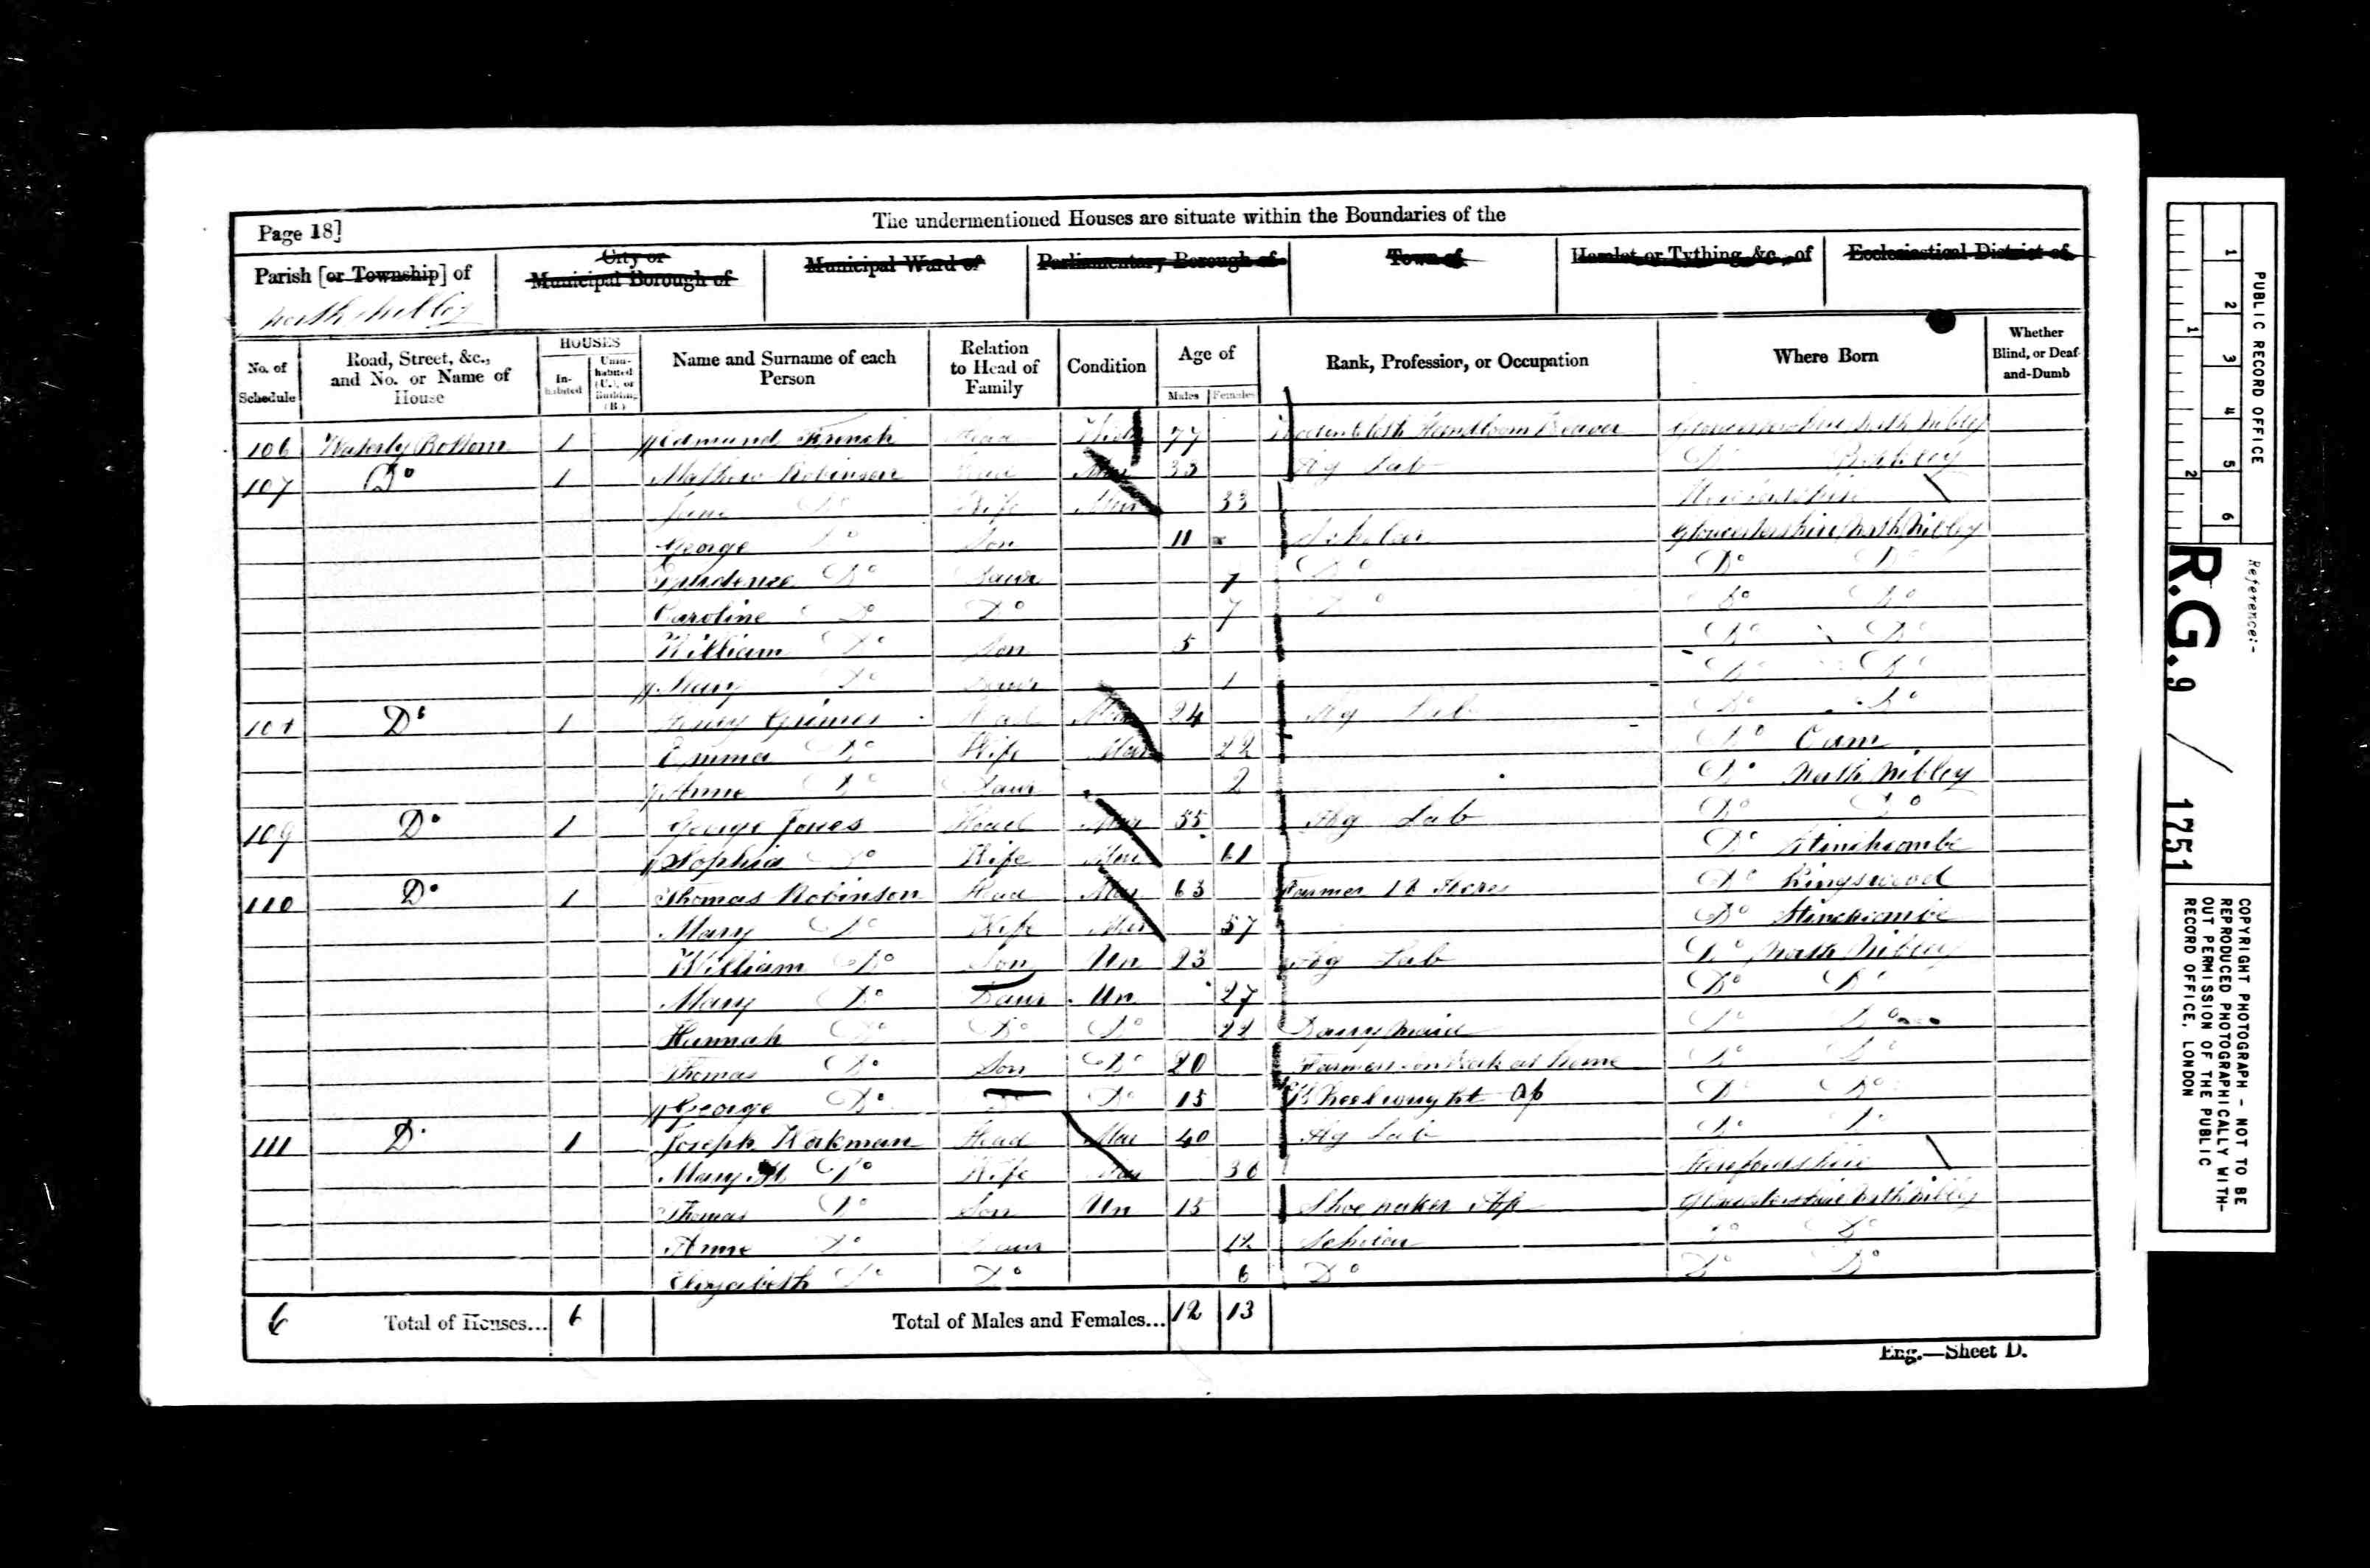 Page 18]
The undermentioned Houses are situate within the Boundaries of the
Parish [or Township] of
City or Municipal Borough of
Municipal Ward of
Parliamentary Borough of
Town of
Hamlet or Tything, &c., of
Ecclesiastical District of
North Nibley
No. of Schedule
Road, Street, &c., and No. or Name of House
HOUSES
In-habited
Unin-habited (U.), or Building (B.)
Name and Surname of each Person
Relation to Head of Family
Condition
Age of
Males
Females
Rank, Profession, or Occupation
Where Born
Whether Blind, or Deaf-and-Dumb
106 Waterly Bottom 1 Edmund Head 77 Handloom Weaver Gloucestershire North Nibley
107 Do 1 Mathew Robinson Head Mar 33 Ag Lab Do
Jane Do Wife Mar 33
George Do Son 11 Scholar Gloucestershire North Nibley
Do Daur Do Do Do
Caroline Do Do 7 Do Do Do
William Do Son 5 Do Do
Mary Do Daur 1 Do Do
Do 1 Henry Grimes Head Mar 24 Ag Lab Do Do
Emma Do Wife Mar 22 Do Cam
Anne Do Daur 2 Do North Nibley
109 Do 1 George Jones Head Mar 55 Ag Lab Do Do
Sophia Do Wife Mar 61 Do Stinchcombe
110 Do 1 Thomas Robinson Head Mar 63 Farmer Acres Do Kingswood
Mary Do Wife Mar 57 Do Stinchcombe
William Do Son Un 23 Ag Lab Do North Nibley
Mary Do Daur Un 27 Do Do
Hannah Do Do Do 22 Dairy Maid Do Do
Thomas Do Son Do 20 Farmers son Work at home Do Do
George Do Do Do 15 Wheelwright Ap Do Do
111 Do 1 Joseph Workman Head Mar 40 Ag Lab Do Do
Mary Do Wife Mar 36 Herefordshire
Thomas Do Son Un 15 Shoemaker Ap Gloucestershire North Nibley
Anne Do Daur 12 Scholar Do Do
Elizabeth Do Do 6 Do Do Do
6 Total of Houses... 6 Total of Males and Females... 12 13
Eng.—Sheet D.
PUBLIC RECORD OFFICE
1 2 3 4 5 6
1 2
Reference:-
R.G. 9 / 1751
COPYRIGHT PHOTOGRAPH - NOT TO BE
REPRODUCED PHOTOGRAPHICALLY WITH-
OUT PERMISSION OF THE PUBLIC
RECORD OFFICE, LONDON